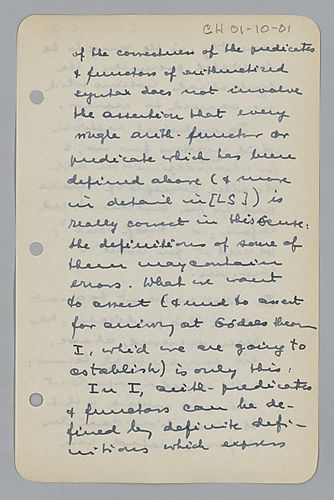 CH 01-10-01
of the correctness of the predicates
& functors of arithmetized
syntax does not involve
the assertion that every
single arith. functor or
predicate which has been
defined above (& more
in detail in [LS]) is
really correct in this sense:
the definitions of some of
them may contain
errors. What we want
to assert (& need to assert
for arriving at Gödels theor.
I, which we are going to
establish) is only this:
In I, arith. predicates
& functors can be de-
fined by definite defi-
nitions which express